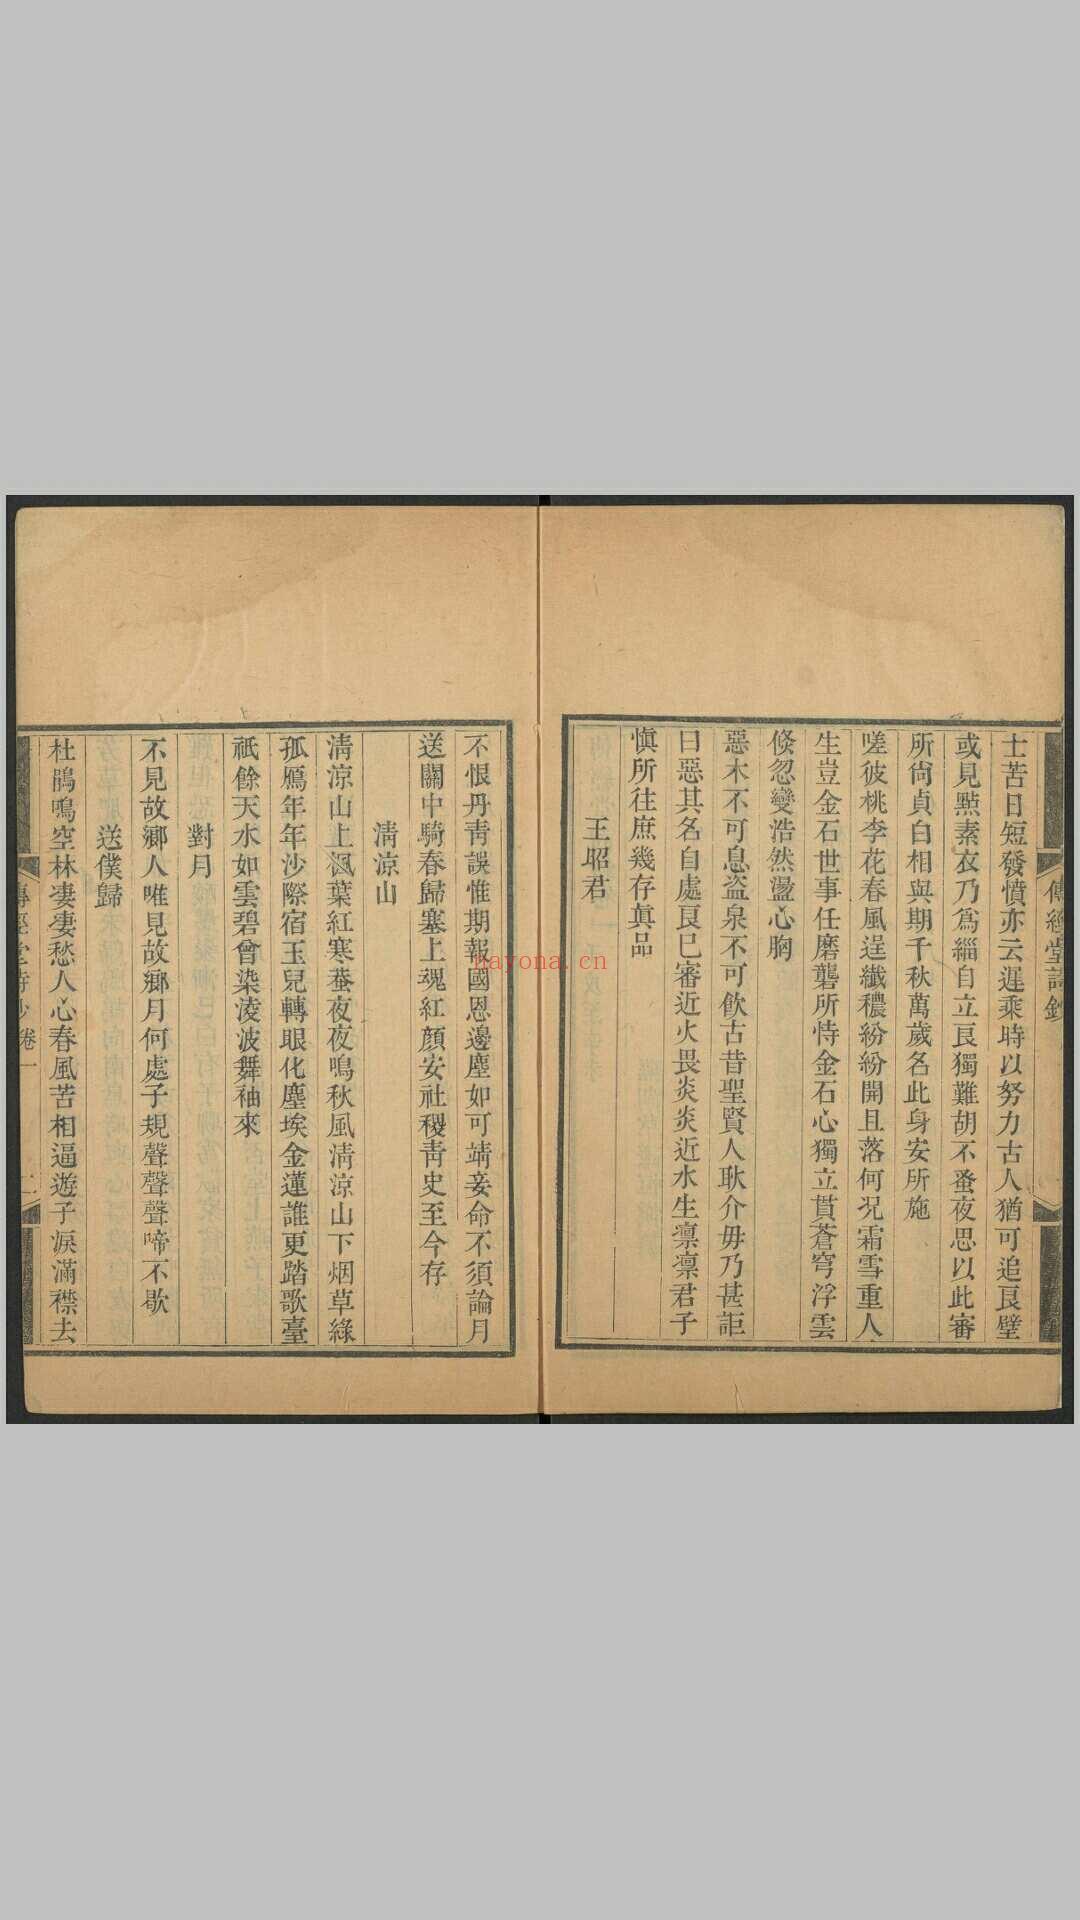 傳經堂詩鈔
士苦日短發憤亦云遲乘時以努力古人猶可追良璧
或見㸃素衣乃爲緇自立良獨難胡不蚤夜思以此審
所尙貞白相與期千秋萬歲名此身安所施
嗟彼桃李花春風逞纖穠紛紛開且落何况霜雪重人
生豈金石世事任磨礱所恃金石心獨立貫蒼穹浮雲
倐忽變浩然盪心胸
惡木不可息盜泉不可飮古昔聖賢人耿介毋乃甚詎
曰惡其名自處良已審近火畏炎炎近水生凛凛君子
愼所往庶幾存眞品
王昭君
不恨丹靑誤惟期報國恩邊塵如可靖妾命不須論月
送關中騎春歸塞上魂紅顏安社稷靑史至今存
淸凉山
淸凉山上楓葉紅寒蛬夜夜鳴秋風淸凉山下烟草綠
孤鴈年年沙際宿玉兒轉眼化塵埃金蓮誰更踏歌臺
祇餘天水如雲碧曾染淩波舞袖來
對月
不見故鄉人唯見故鄉月何處子規聲聲聲啼不歇
送僕歸
杜鵑鳴空林凄凄愁人心春風苦相逼遊子淚滿襟去
傳經堂詩鈔 卷一 二
nayona.cn